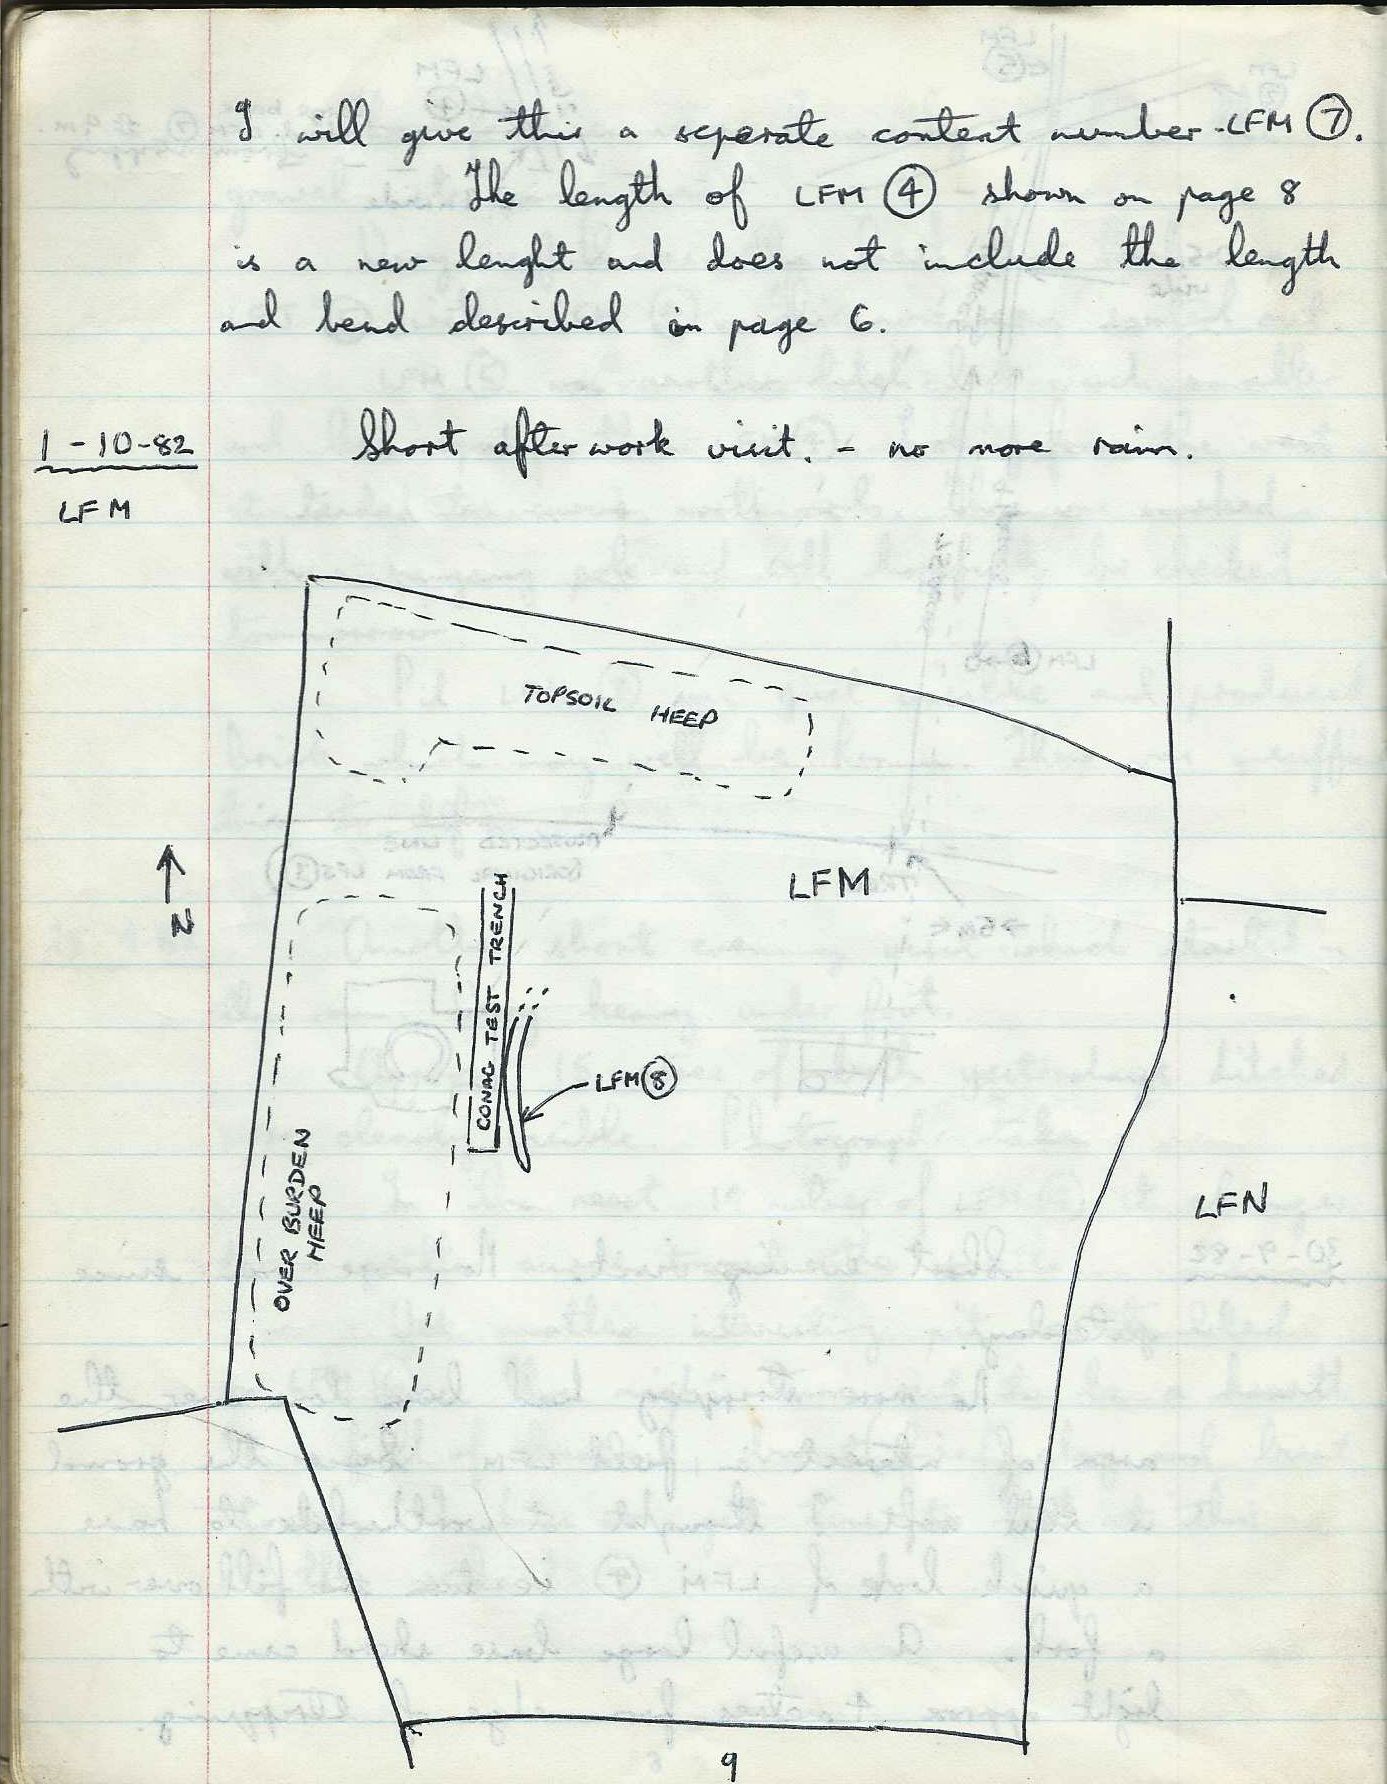 I will give this a seperate content number - LFM ⑦.
The length of LFM ④ shown on page 8
is a new lenght and does not include the length
and bend described in page 6.
1-10-82 Short after work visit. - no more rain.
LFM
TOPSOIL HEEP
LFM
N
CONAG TEST TRENCH
LFM ⑧
OVER BURDEN
HEEP
LFN
9